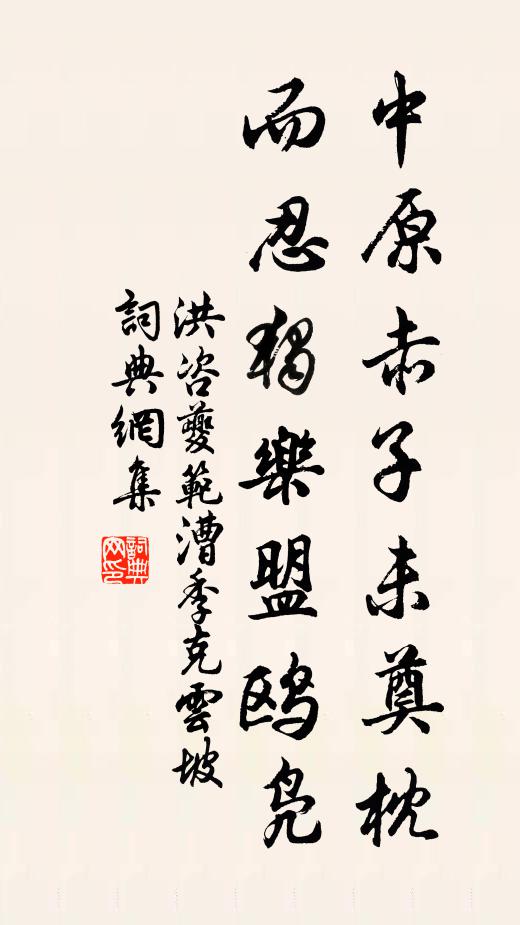 中原赤子未奠枕
而忍獨樂盟鷗鳧
洪咨夔範漕季克雲坡
詞典網集
詞典
网印